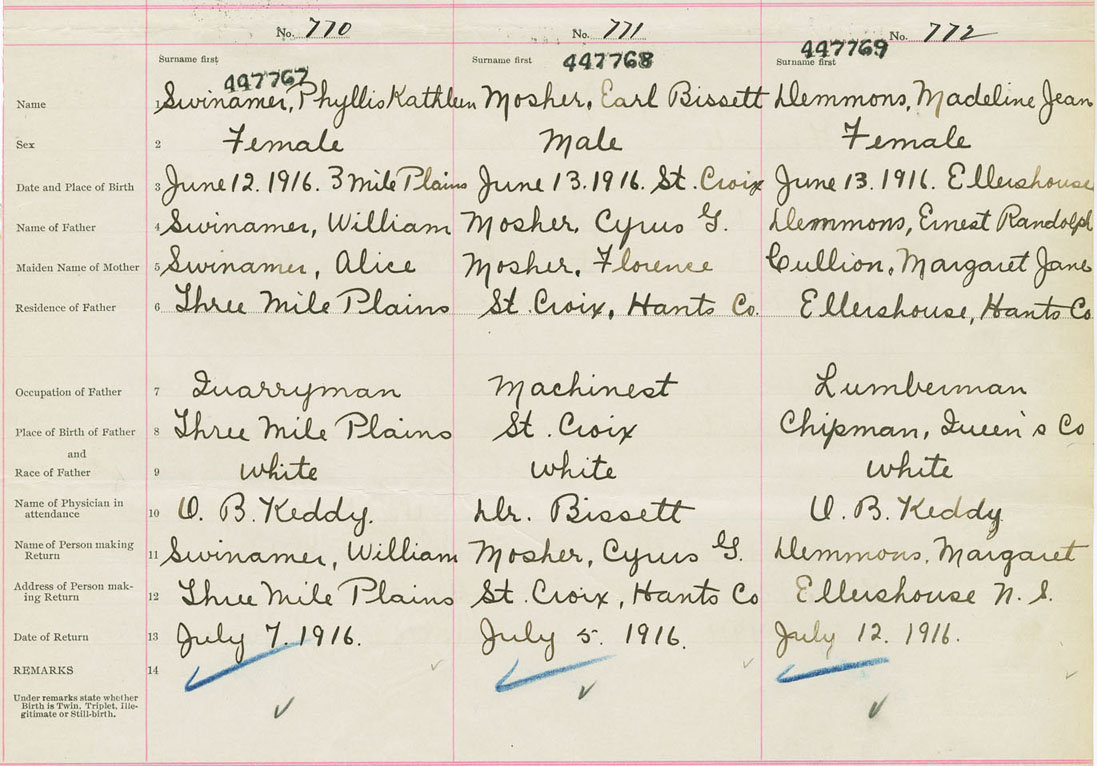 No. 770 No. 771 No. 772
Surname first Surname first Surname first
447767 447768 447769
Name 1 Swinamer, Phyllis Kathleen Mosher, Earl Bissett Demmons, Madeline Jean
Sex 2 Female Male Female
Date and Place of Birth 3 June 12. 1916. 3 mile Plains June 13. 1916. St. Croix June 13. 1916. Ellershouse
Name of Father 4 Swinamer, William Mosher, Cyrus G. Demmons, Ernest Randolph
Maiden Name of Mother 5 Swinamer, Alice Mosher, Florence Cullion, Margaret Jane
Residence of Father 6 Three Mile Plains St. Croix, Hants Co. Ellershouse, Hants Co
Occupation of Father 7 Quarryman Machinest Lumberman
Place of Birth of Father 8 Three Mile Plains St. Croix Chipman, Queen's Co
and
Race of Father 9 White White White
Name of Physician in
attendance 10 O. B. Keddy. Dr. Bissett O. B. Keddy
Name of Person making
Return 11 Swinamer, William Mosher, Cyrus G. Demmons, Margaret
Address of Person mak-
ing Return 12 Three Mile Plains St. Croix, Hants Co Ellershouse N. S.
Date of Return 13 July 7. 1916. July 5. 1916. July 12. 1916.
REMARKS 14
Under remarks state whether
Birth is Twin, Triplet, Ille-
gitimate or Still-birth.